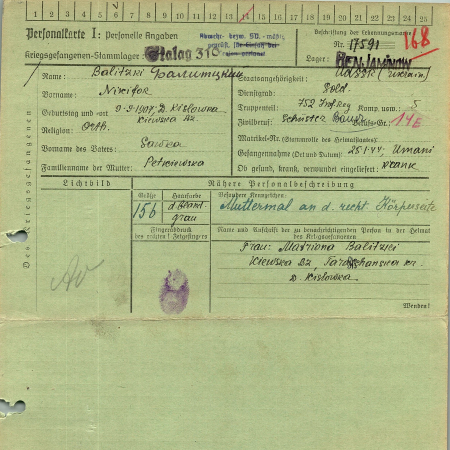 1 2 3 4 5 6 7 8 9 10 11 12 13 14 15 16 17 18 19 20 21 22 23 24 25
Personalkarte I: Personelle Angaben
Beschriftung der Erkennungsmarke
Nr. 17591
168
Kriegsgefangenen-Stammlager: Stalag 310
Lager: BENJAMINOW
Des Kriegsgefangenen
Name: Balitzki Балитцкий
Staatsangehörigkeit: UdSSR (Ukrain)
Vorname: Nikifor
Dienstgrad: Sold.
Geburtstag und -ort: 9.9.1907, D. Kislowka
Kiewska Bz.
Truppenteil: 752 Komp. usw.: 5
Religion: Orth.
Zivilberuf: Schuster Berufs-Gr.: 14E
Vorname des Vaters: Sawka
Matrikel-Nr. (Stammrolle des Heimatstaates):
Gefangennahme (Ort und Datum): 25.1.44, Umani
Familienname der Mutter:
Ob gesund, krank, verwundet eingeliefert: krank
Lichtbild
Nähere Personalbeschreibung
Größe
Haarfarbe
Besondere Kennzeichen:
156
grau
Muttermal an d. recht. Körperseite
Fingerabdruck
des rechten! Zeigefingers
Name und Anschrift der zu benachrichtigenden Person in der Heimat
des Kriegsgefangenen
Frau: Matriona Balitzki
Kiewska Bz,
D. Kislowka
Wenden!